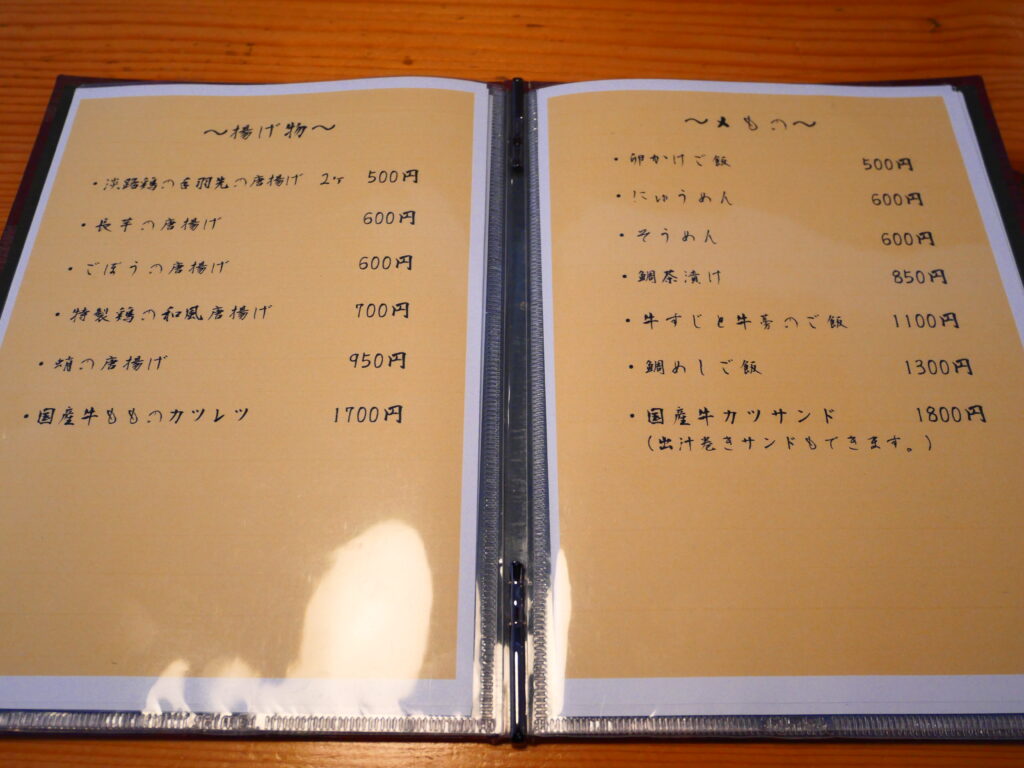 ～揚げ物～
・淡路鶏の手羽先の唐揚げ 2ヶ 500円
・長芋の唐揚げ 600円
・ごぼうの唐揚げ 600円
・特製鶏の和風唐揚げ 700円
・蛸の唐揚げ 950円
・国産牛もものカツレツ 1700円
～〆もの～
・卵かけご飯 500円
・にゅうめん 600円
・そうめん 600円
・鯛茶漬け 850円
・牛すじと牛蒡のご飯 1100円
・鯛めしご飯 1300円
・国産牛カツサンド 1800円
(出汁巻きサンドもできます。)